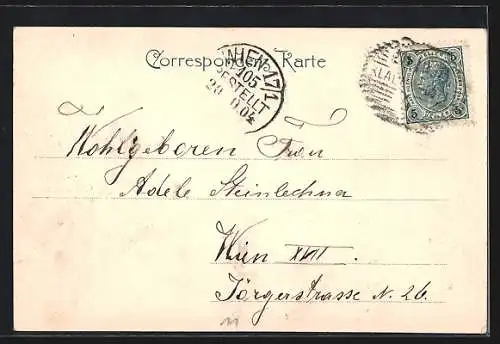 Correspondenz-Karte
WIEN 17/1
105
BESTELLT
20
9.04
5
5
Wohlgeboren Frau
Adele Steinlechner
Wien XVII.
Jörgerstrasse N. 26.